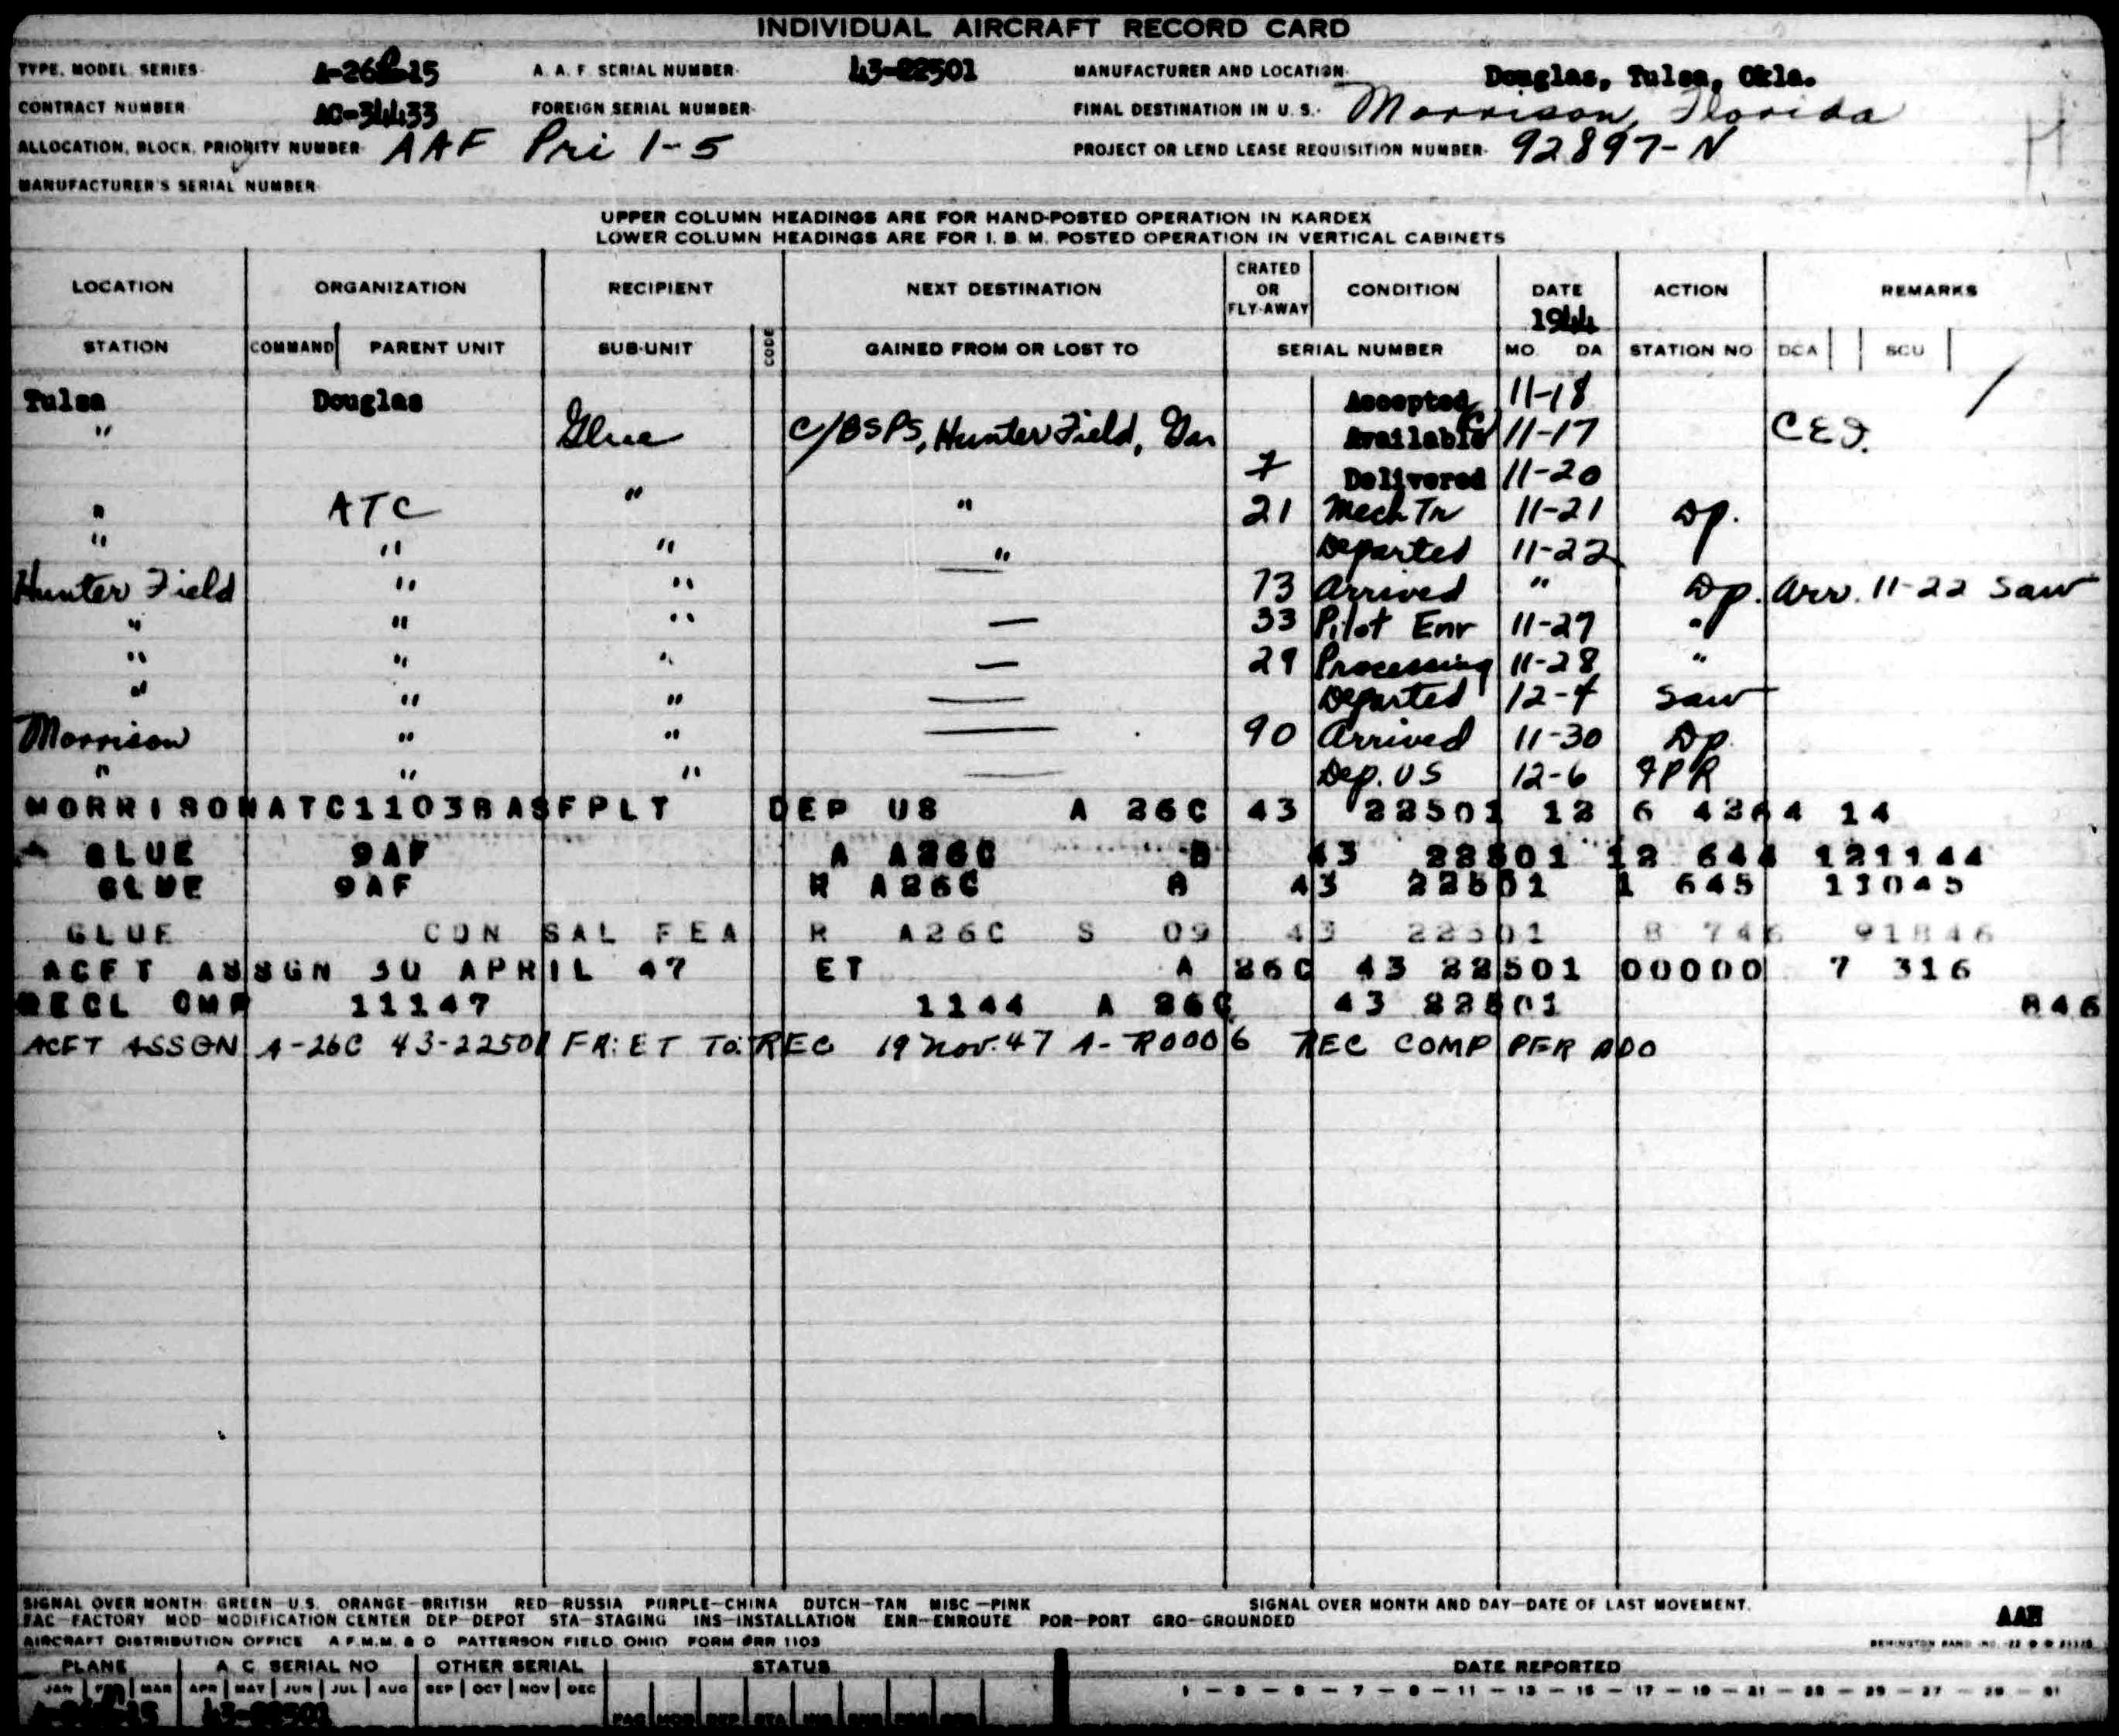 INDIVIDUAL AIRCRAFT RECORD CARD
TYPE, MODEL, SERIES A-26C-15 A. A. F. SERIAL NUMBER 43-22501 MANUFACTURER AND LOCATION Douglas, Tulsa, Okla.
CONTRACT NUMBER AC-34433 FOREIGN SERIAL NUMBER FINAL DESTINATION IN U. S. Morrison, Florida
ALLOCATION, BLOCK, PRIORITY NUMBER AAF Pri 1-5 PROJECT OR LEND LEASE REQUISITION NUMBER 92897-N
MANUFACTURER'S SERIAL NUMBER
UPPER COLUMN HEADINGS ARE FOR HAND-POSTED OPERATION IN KARDEX
LOWER COLUMN HEADINGS ARE FOR I. B. M. POSTED OPERATION IN VERTICAL CABINETS
LOCATION ORGANIZATION RECIPIENT NEXT DESTINATION CRATED OR FLY-AWAY CONDITION DATE 1944 ACTION REMARKS
STATION COMMAND PARENT UNIT SUB-UNIT CODE GAINED FROM OR LOST TO SERIAL NUMBER MO. DA STATION NO DCA SCU
Tulsa Douglas Accepted 11-18
" Glue C/BSPS, Hunter Field, Ga. Available 11-17
7 Delivered 11-20
" ATC " " 21 Mech Tr 11-21 Dp.
" " " " Departed 11-22
Hunter Field " " — 73 Arrived " Dp. Arr. 11-22 Saw
" " " — 33 Pilot Enr 11-27 "
" " " — 29 Processing 11-28 "
" " " — Departed 12-4 Saw
Morrison " " — 90 Arrived 11-30 Dp
" " " — Dep. US 12-6 FPR
MORRISON ATC1103BASFPLT DEP US A 26C 43 22501 12 6 4264 14
GLUE 9AF A A26C 43 22501 12 644 121144
GLUE 9AF R A26C 43 22501 1 645 13045
GLUE CON SAL FEA R A26C S 09 43 22501 8 746 91846
ACFT ASSGN 30 APRIL 47 ET A 26C 43 22501 00000 7 316
RECL CMP 11147 1144 A 26C 43 22501 846
ACFT ASSGN A-26C 43-22501 FR: ET TO: REC 19 Nov. 47 A-R0006 REC COMP PER ADO
SIGNAL OVER MONTH: GREEN—U.S. ORANGE—BRITISH RED—RUSSIA PURPLE—CHINA DUTCH—TAN MISC—PINK SIGNAL OVER MONTH AND DAY—DATE OF LAST MOVEMENT.
FAC—FACTORY MOD—MODIFICATION CENTER DEP—DEPOT STA—STAGING INS—INSTALLATION ENR—ENROUTE POR—PORT GRO—GROUNDED
AIRCRAFT DISTRIBUTION OFFICE PATTERSON FIELD, OHIO FORM 1103
REMINGTON RAND
PLANE A. C. SERIAL NO OTHER SERIAL STATUS DATE REPORTED
JAN FEB MAR APR MAY JUN JUL AUG SEP OCT NOV DEC 1 — 3 — 5 — 7 — 9 — 11 — 13 — 15 — 17 — 19 — 21 — 23 — 25 — 27 — 29 — 31
43-22501